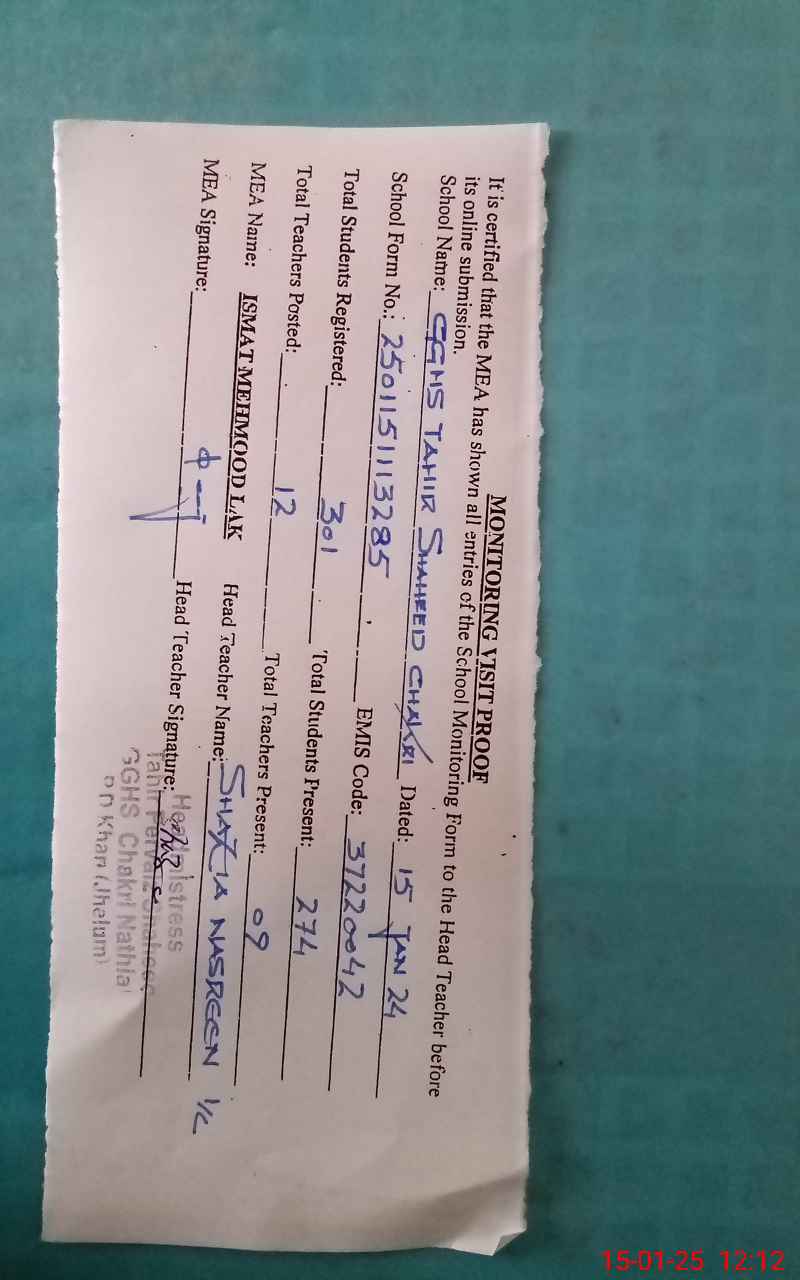 MONITORING VISIT PROOF
It is certified that the MEA has shown all entries of the School Monitoring Form to the Head Teacher before
its online submission.
School Name: GGHS TAHIR SHAHEED CHAKRI Dated: 15 JAN 24
School Form No.: 2501151113285 EMIS Code: 37220042
Total Students Registered: 301 Total Students Present: 274
Total Teachers Posted: 12 Total Teachers Present: 09
MEA Name: ISMAT MEHMOOD LAK Head Teacher Name: SHAZIA NASREEN I/C
MEA Signature: Head Teacher Signature:
Headmistress
Tahir Pervaiz Shaheed
GGHS Chakri Nathial
P.D Khan (Jhelum)
15-01-25 12:12